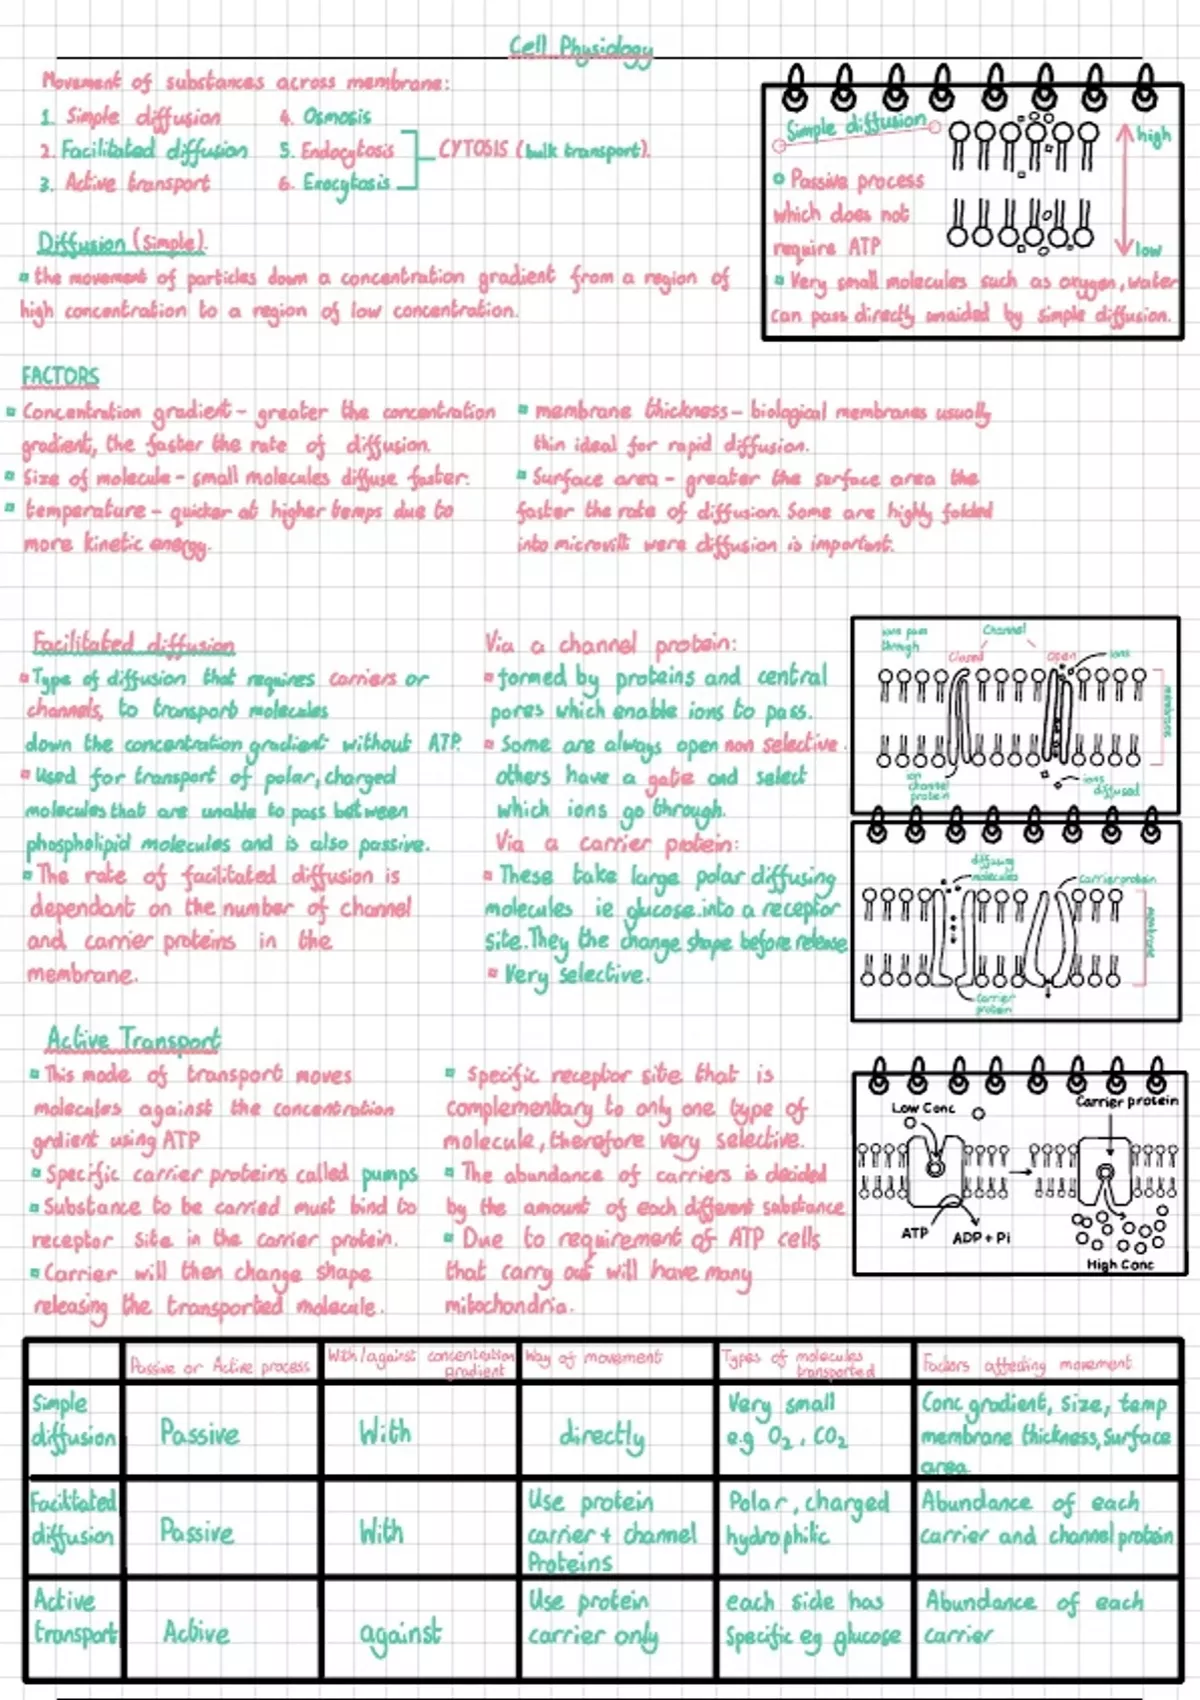 Cell Physiology
Movement of substances across membrane:
1. Simple diffusion
2. Facilitated diffusion
3. Active transport
4. Osmosis
5. Endocytosis
6. Exocytosis
CYTOSIS (bulk transport).
Simple diffusion
Passive process
which does not
require ATP
high
low
Very small molecules such as oxygen, water
can pass directly unaided by simple diffusion.
Diffusion (simple).
the movement of particles down a concentration gradient from a region of
high concentration to a region of low concentration.
FACTORS
Concentration gradient - greater the concentration
gradient, the faster the rate of diffusion.
Size of molecule - small molecules diffuse faster.
temperature - quicker at higher temps due to
more kinetic energy.
membrane thickness - biological membranes usually
thin ideal for rapid diffusion.
Surface area - greater the surface area the
faster the rate of diffusion. Some are highly folded
into microvilli were diffusion is important.
Facilitated diffusion
Type of diffusion that requires carriers or
channels, to transport molecules
down the concentration gradient without ATP.
Used for transport of polar, charged
molecules that are unable to pass between
phospholipid molecules and is also passive.
The rate of facilitated diffusion is
dependant on the number of channel
and carrier proteins in the
membrane.
Via a channel protein:
formed by proteins and central
pores which enable ions to pass.
Some are always open non selective.
others have a gate and select
which ions go through.
Via a carrier protein:
These take large polar diffusing
molecules ie glucose into a receptor
site. They the change shape before release
Very selective.
ions pass
through
Channel
Closed
Open
ions
membrane
ion
channel
protein
ions
diffused
diffusing
molecules
Carrier protein
membrane
Carrier
protein
Active Transport
This mode of transport moves
molecules against the concentration
grdient using ATP
Specific carrier proteins called pumps
Substance to be carried must bind to
receptor site in the carrier protein.
Carrier will then change shape
releasing the transported molecule.
Specific receptor site that is
complementary to only one type of
molecule, therefore very selective.
The abundance of carriers is decided
by the amount of each different substance
Due to requirement of ATP cells
that carry out will have many
mitochondria.
Low Conc
Carrier protein
ATP
ADP + Pi
High Conc
Passive or Active process
With/against concentration
gradient
Way of movement
Types of molecules
transported
Factors affecting movement
Simple
diffusion
Passive
With
directly
Very small
e.g O₂, CO₂
Conc gradient, size, temp
membrane thickness, surface
area
Facilitated
diffusion
Passive
With
Use protein
carrier + channel
Proteins
Polar, charged
hydrophilic
Abundance of each
carrier and channel protein
Active
transport
Active
against
Use protein
carrier only
each side has
specific eg glucose
Abundance of each
carrier